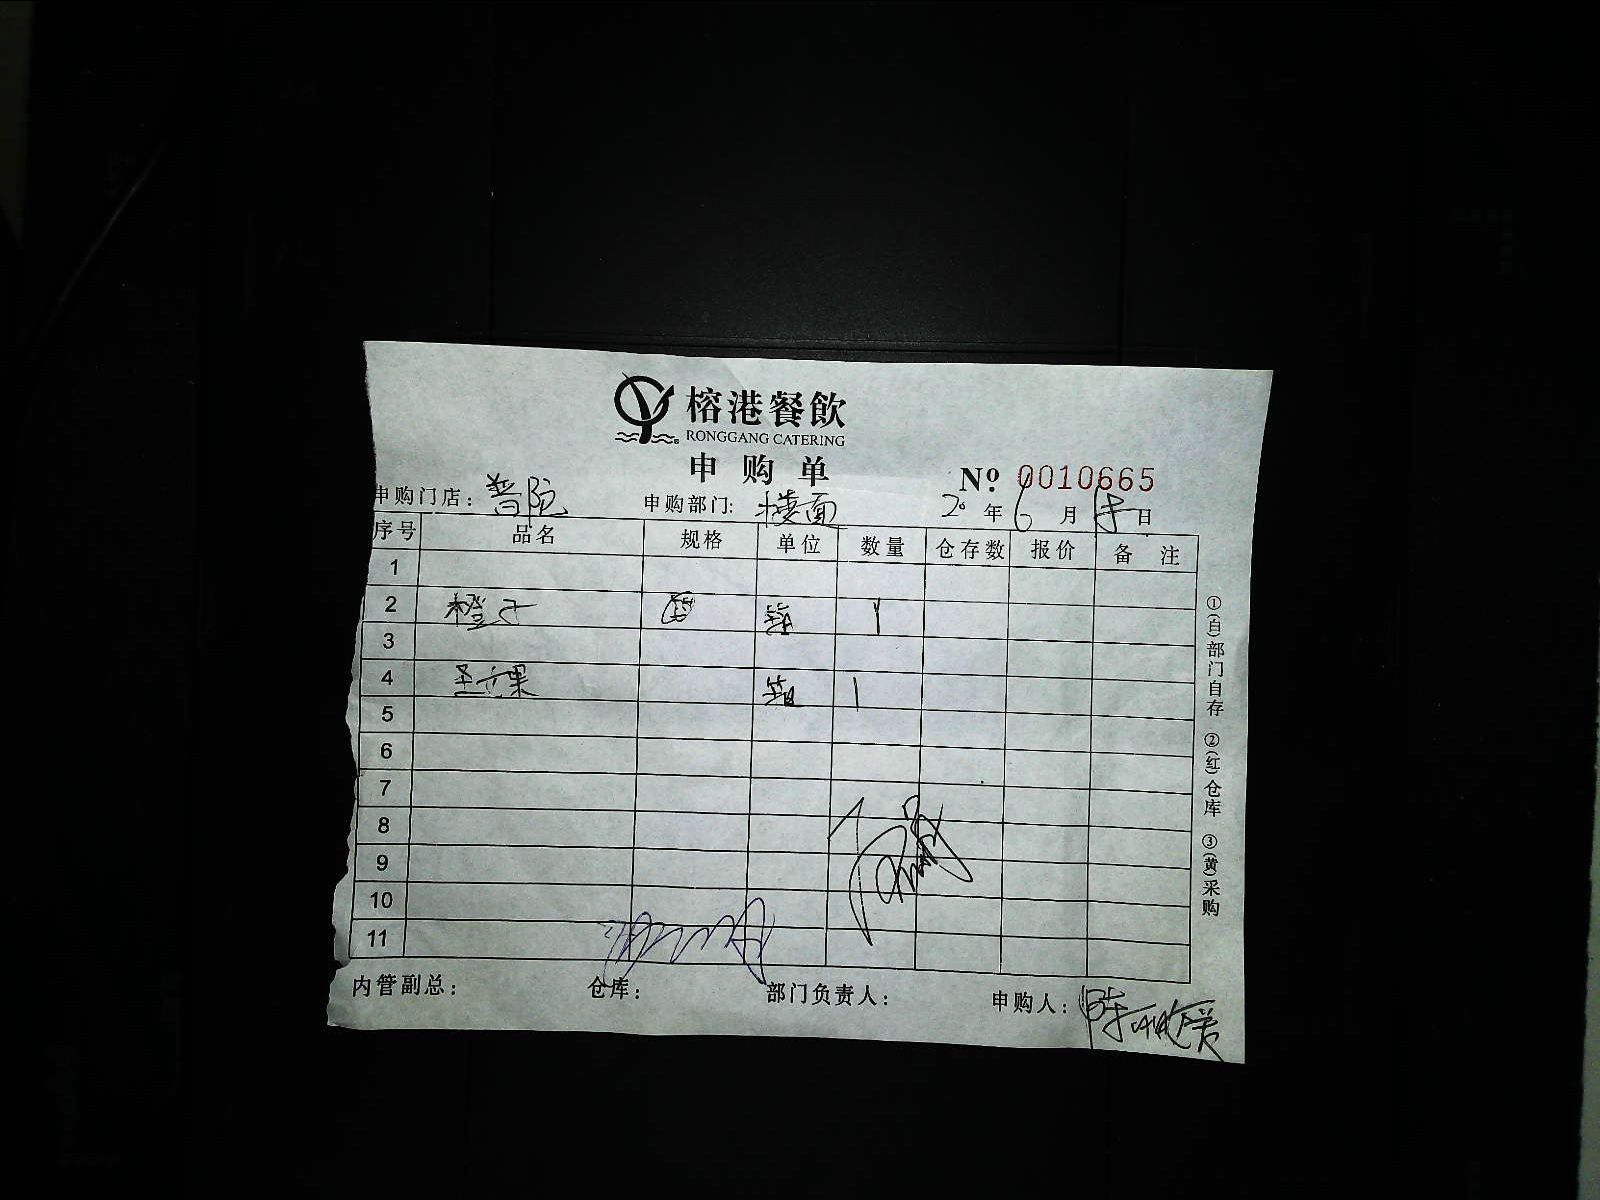 榕港餐飲
RONGGANG CATERING
申购单
№ 0010665
申购门店：普陀 申购部门：楼面 20年6月 日
序号 品名 规格 单位 数量 仓存数 报价 备注
1
2 橙子 箱 1
3
4 圣女果 箱 1
5
6
7
8
9
10
11
内管副总： 仓库： 部门负责人： 申购人：陈
①(白)部门自存 ②(红)仓库 ③(黄)采购